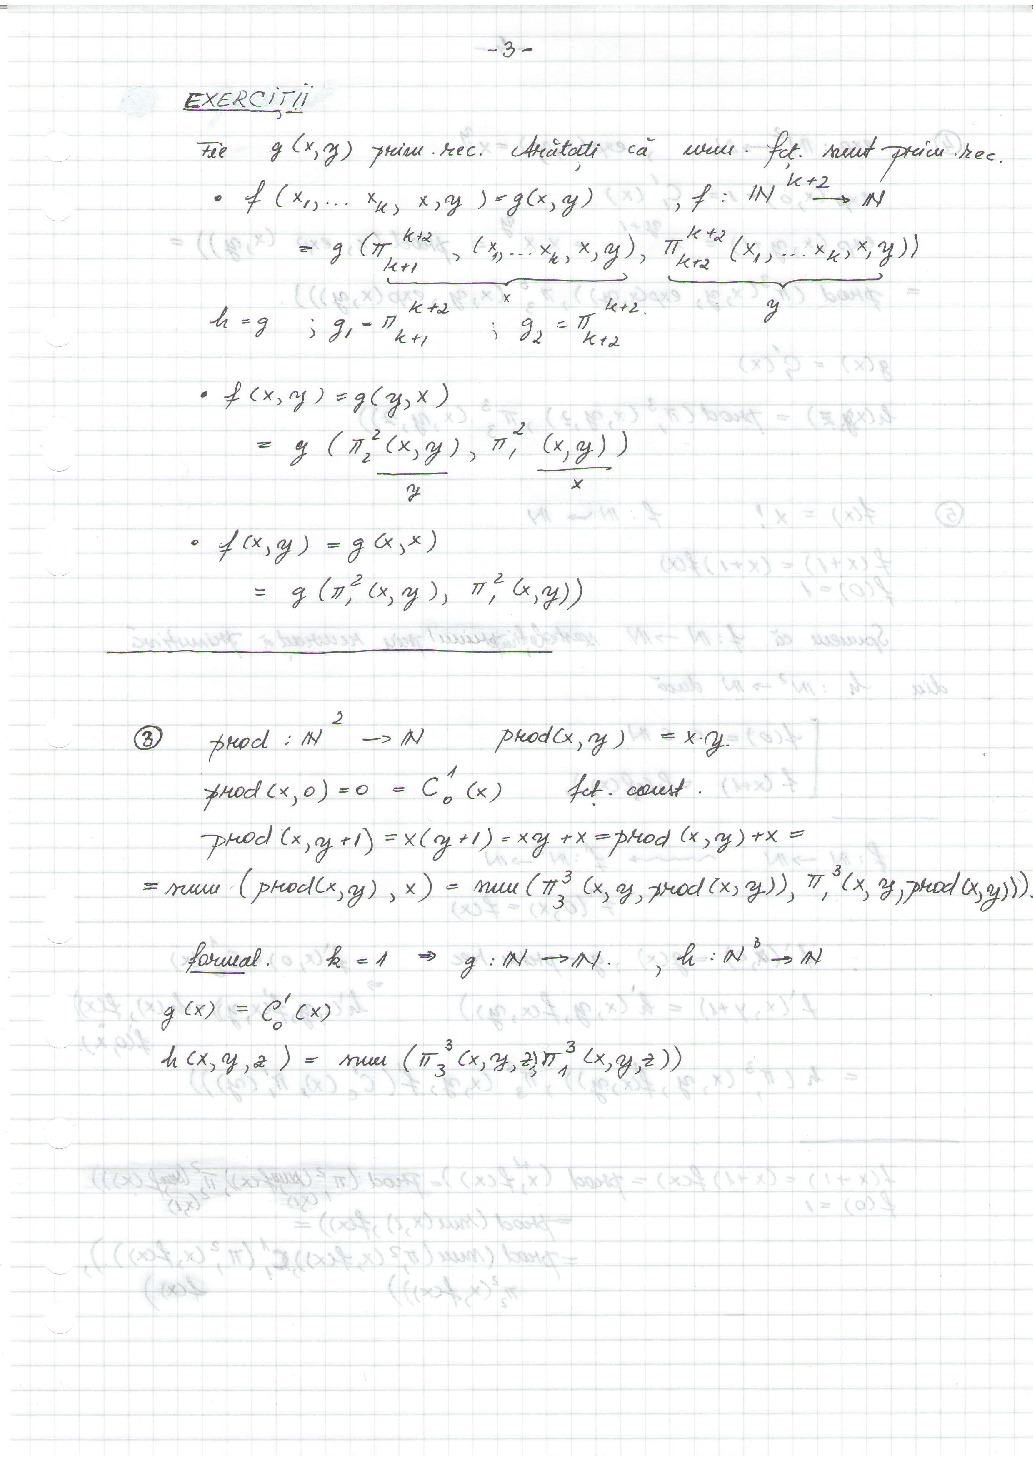 -3-
EXERCIȚII
Fie g(x,y) prim. rec. Arătați că urm. fct. sunt prim. rec.
• f(x₁,... xₖ, x,y) = g(x,y) , f : ℕ^{k+2} → ℕ
= g (π_{k+1}^{k+2}, (x₁,... xₖ, x, y), π_{k+2}^{k+2} (x₁,... xₖ, x, y))
x y
h = g ; g₁ - π_{k+1}^{k+2} ; g₂ = π_{k+2}^{k+2}.
• f(x,y) = g(y,x)
= g (π₂² (x,y), π₁² (x,y))
y x
• f(x,y) = g(x,x)
= g (π₁² (x,y), π₁² (x,y))
③ prod : ℕ² → ℕ prod(x,y) = x·y.
prod(x,0) = 0 = C₀¹ (x) fct. const.
prod(x,y+1) = x(y+1) = xy + x = prod(x,y) + x =
= sum (prod(x,y), x) = sum (π₃³ (x,y,prod(x,y)), π₁³ (x,y,prod(x,y))).
formal. k = 1 ⇒ g : ℕ → ℕ. , h : ℕ³ → ℕ
g(x) = C₀¹ (x)
h(x,y,z) = sum (π₃³ (x,y,z), π₁³ (x,y,z))